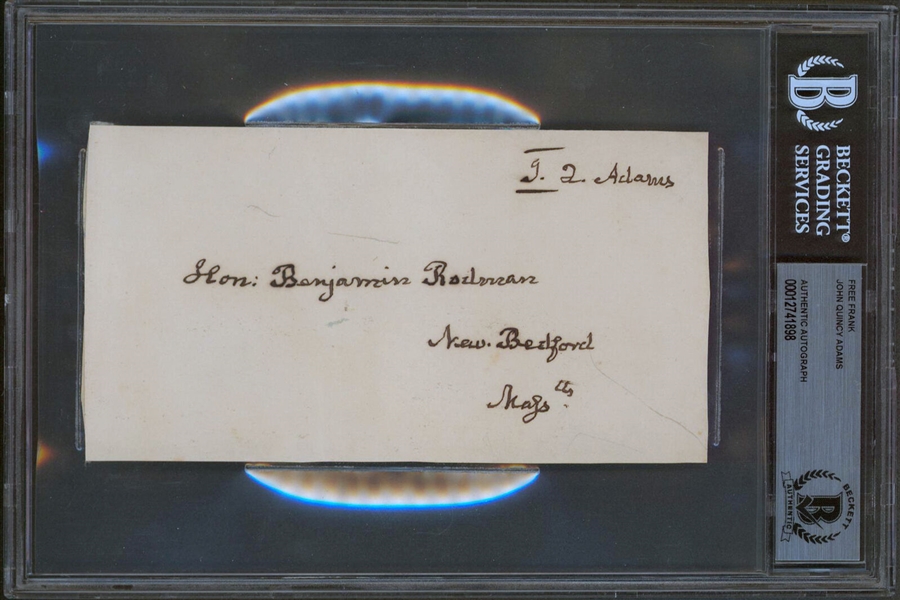 J. Q. Adams
Hon: Benjamin Rodman
New-Bedford
Mass tts
B
BECKETT®
GRADING
SERVICES
FREE FRANK
JOHN QUINCY ADAMS
AUTHENTIC AUTOGRAPH
00012741898
BECKETT
B
AUTHENTIC